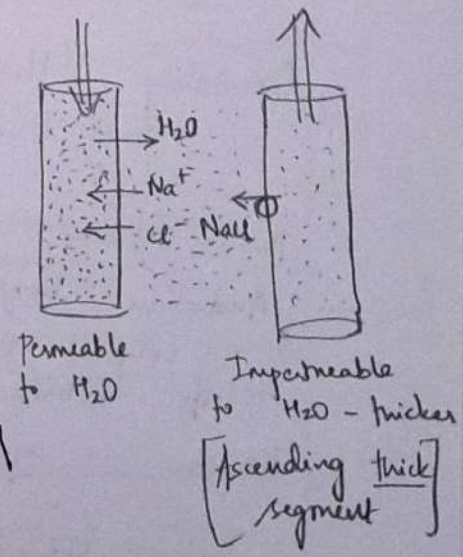 H₂O
Na⁺
Cl⁻ NaCl
Permeable
to H₂O
Impermeable
to H₂O - thicker
[Ascending thick
segment]